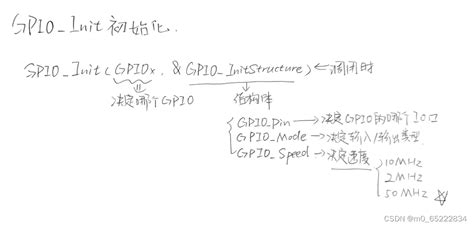 GPIO_Init 初始化.
GPIO_Init(GPIOx, & GPIO_InitStructure) ← 调用时
决定哪个GPIO 结构体
GPIO_Pin → 决定GPIO的哪个IO口
GPIO_Mode → 决定输入/输出类型
GPIO_Speed → 决定速度
10MHz
2MHz
50MHz
CSDN @m0_65222834